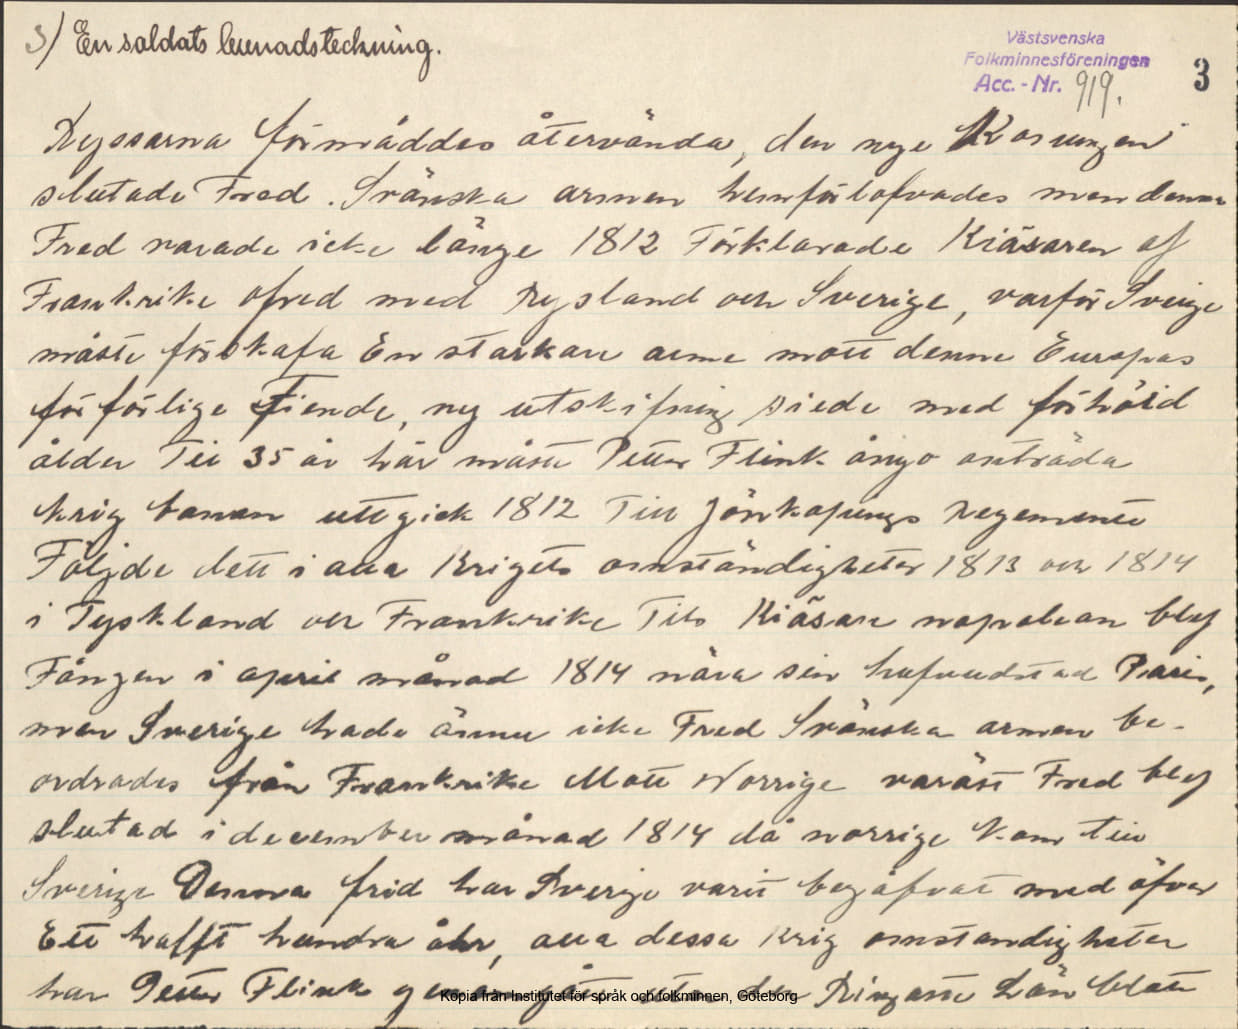 3) En soldats levnadsteckning.
Västsvenska
Folkminnesföreningen
Acc. - Nr. 919.
3
Ryssarna förmåddes återvända, den nye Konungen
slutade Fred. Svänska armen hemförlofvades men denna
Fred varade icke länge 1812 Förklarade Kiäsaren af
Frankrike ofred med Rysland och Sverige, varför Sverige
måste förskafa En starkare arme mott denne Europas
förförlige Fiende, ny utskifning skiede med förhöid
ålder Till 35 år här måste Petter Flink ånyo anträda
krig banan uttgick 1812 Till Jönkapings Regemente
Följde dett i alla Krigets omständigheter 1813 och 1814
i Tyskland och Frankrike Tils Kiäsare napolean blef
Fången i april månad 1814 nära sin hufvudstad Paris,
men Sverige hade ännu icke Fred Svänska armen be-
ordrades från Frankrike Mott Norrige varäst Fred blef
slutad i december månad 1814 då norrige kom till
Sverige Denna frid har Sverige varit begåfvat med öfver
Ett hafft hundra åhr, alla dessa Krig omstandigheter
har Petter Flink genomgått utan den Ringaste Lön blott
Kopia från Institutet för språk och folkminnen, Göteborg